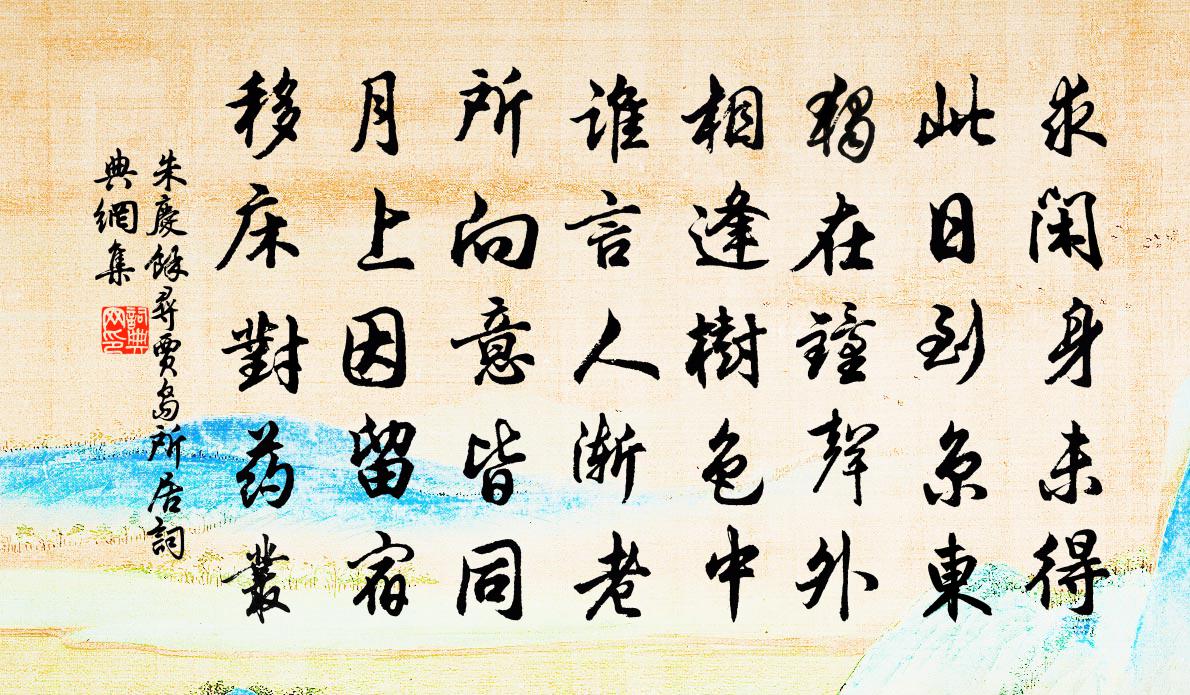 求閑身未得
此日到京東
獨在鐘聲外
相逢樹色中
誰言人漸老
所向意皆同
月上因留宿
移床對药叢
朱慶餘尋賈島所居詞
典網集
詞典
网印